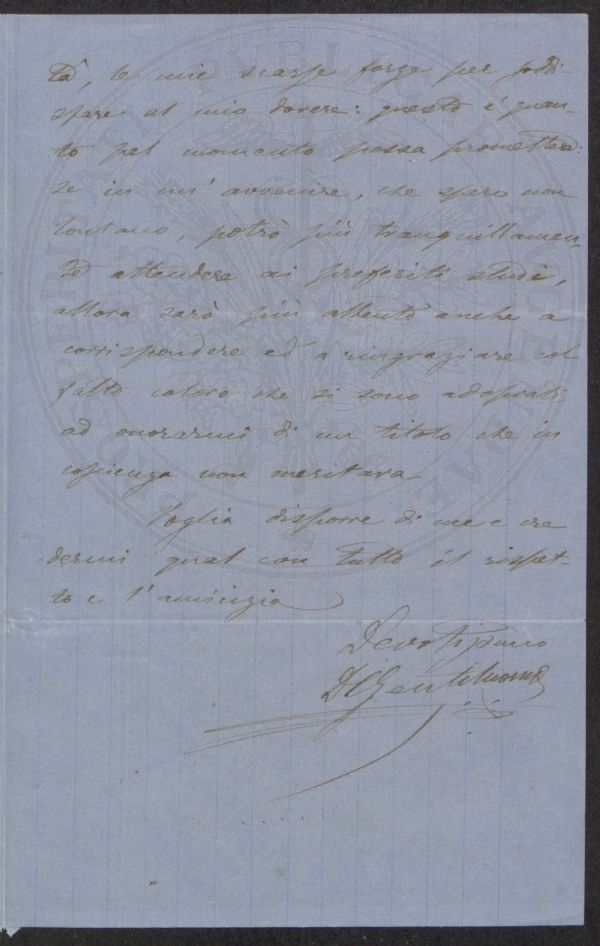 tà, le mie scarse forze per soddi-
sfare al mio dovere: questo è quan-
to pel momento possa promettere:
se in un' avvenire, che spero non
lontano, potrò più tranquillamen-
te attendere ai preferiti studi,
allora sarò più attento anche a
corrispondere ed a ringraziare col
fatto coloro che si sono adoprati
ad onorarmi di un titolo che in
coscienza non meritava
Voglia disporre di me e cre
dermi qual con tutto il rispet-
to e l'amicizia
Devotissimo